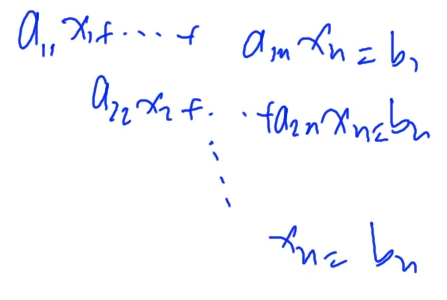 a₁₁x₁+ ··· + a₁ₙxₙ = b₁
a₂₂x₂ + · · + a₂ₙxₙ = b₂
xₙ = bₙ